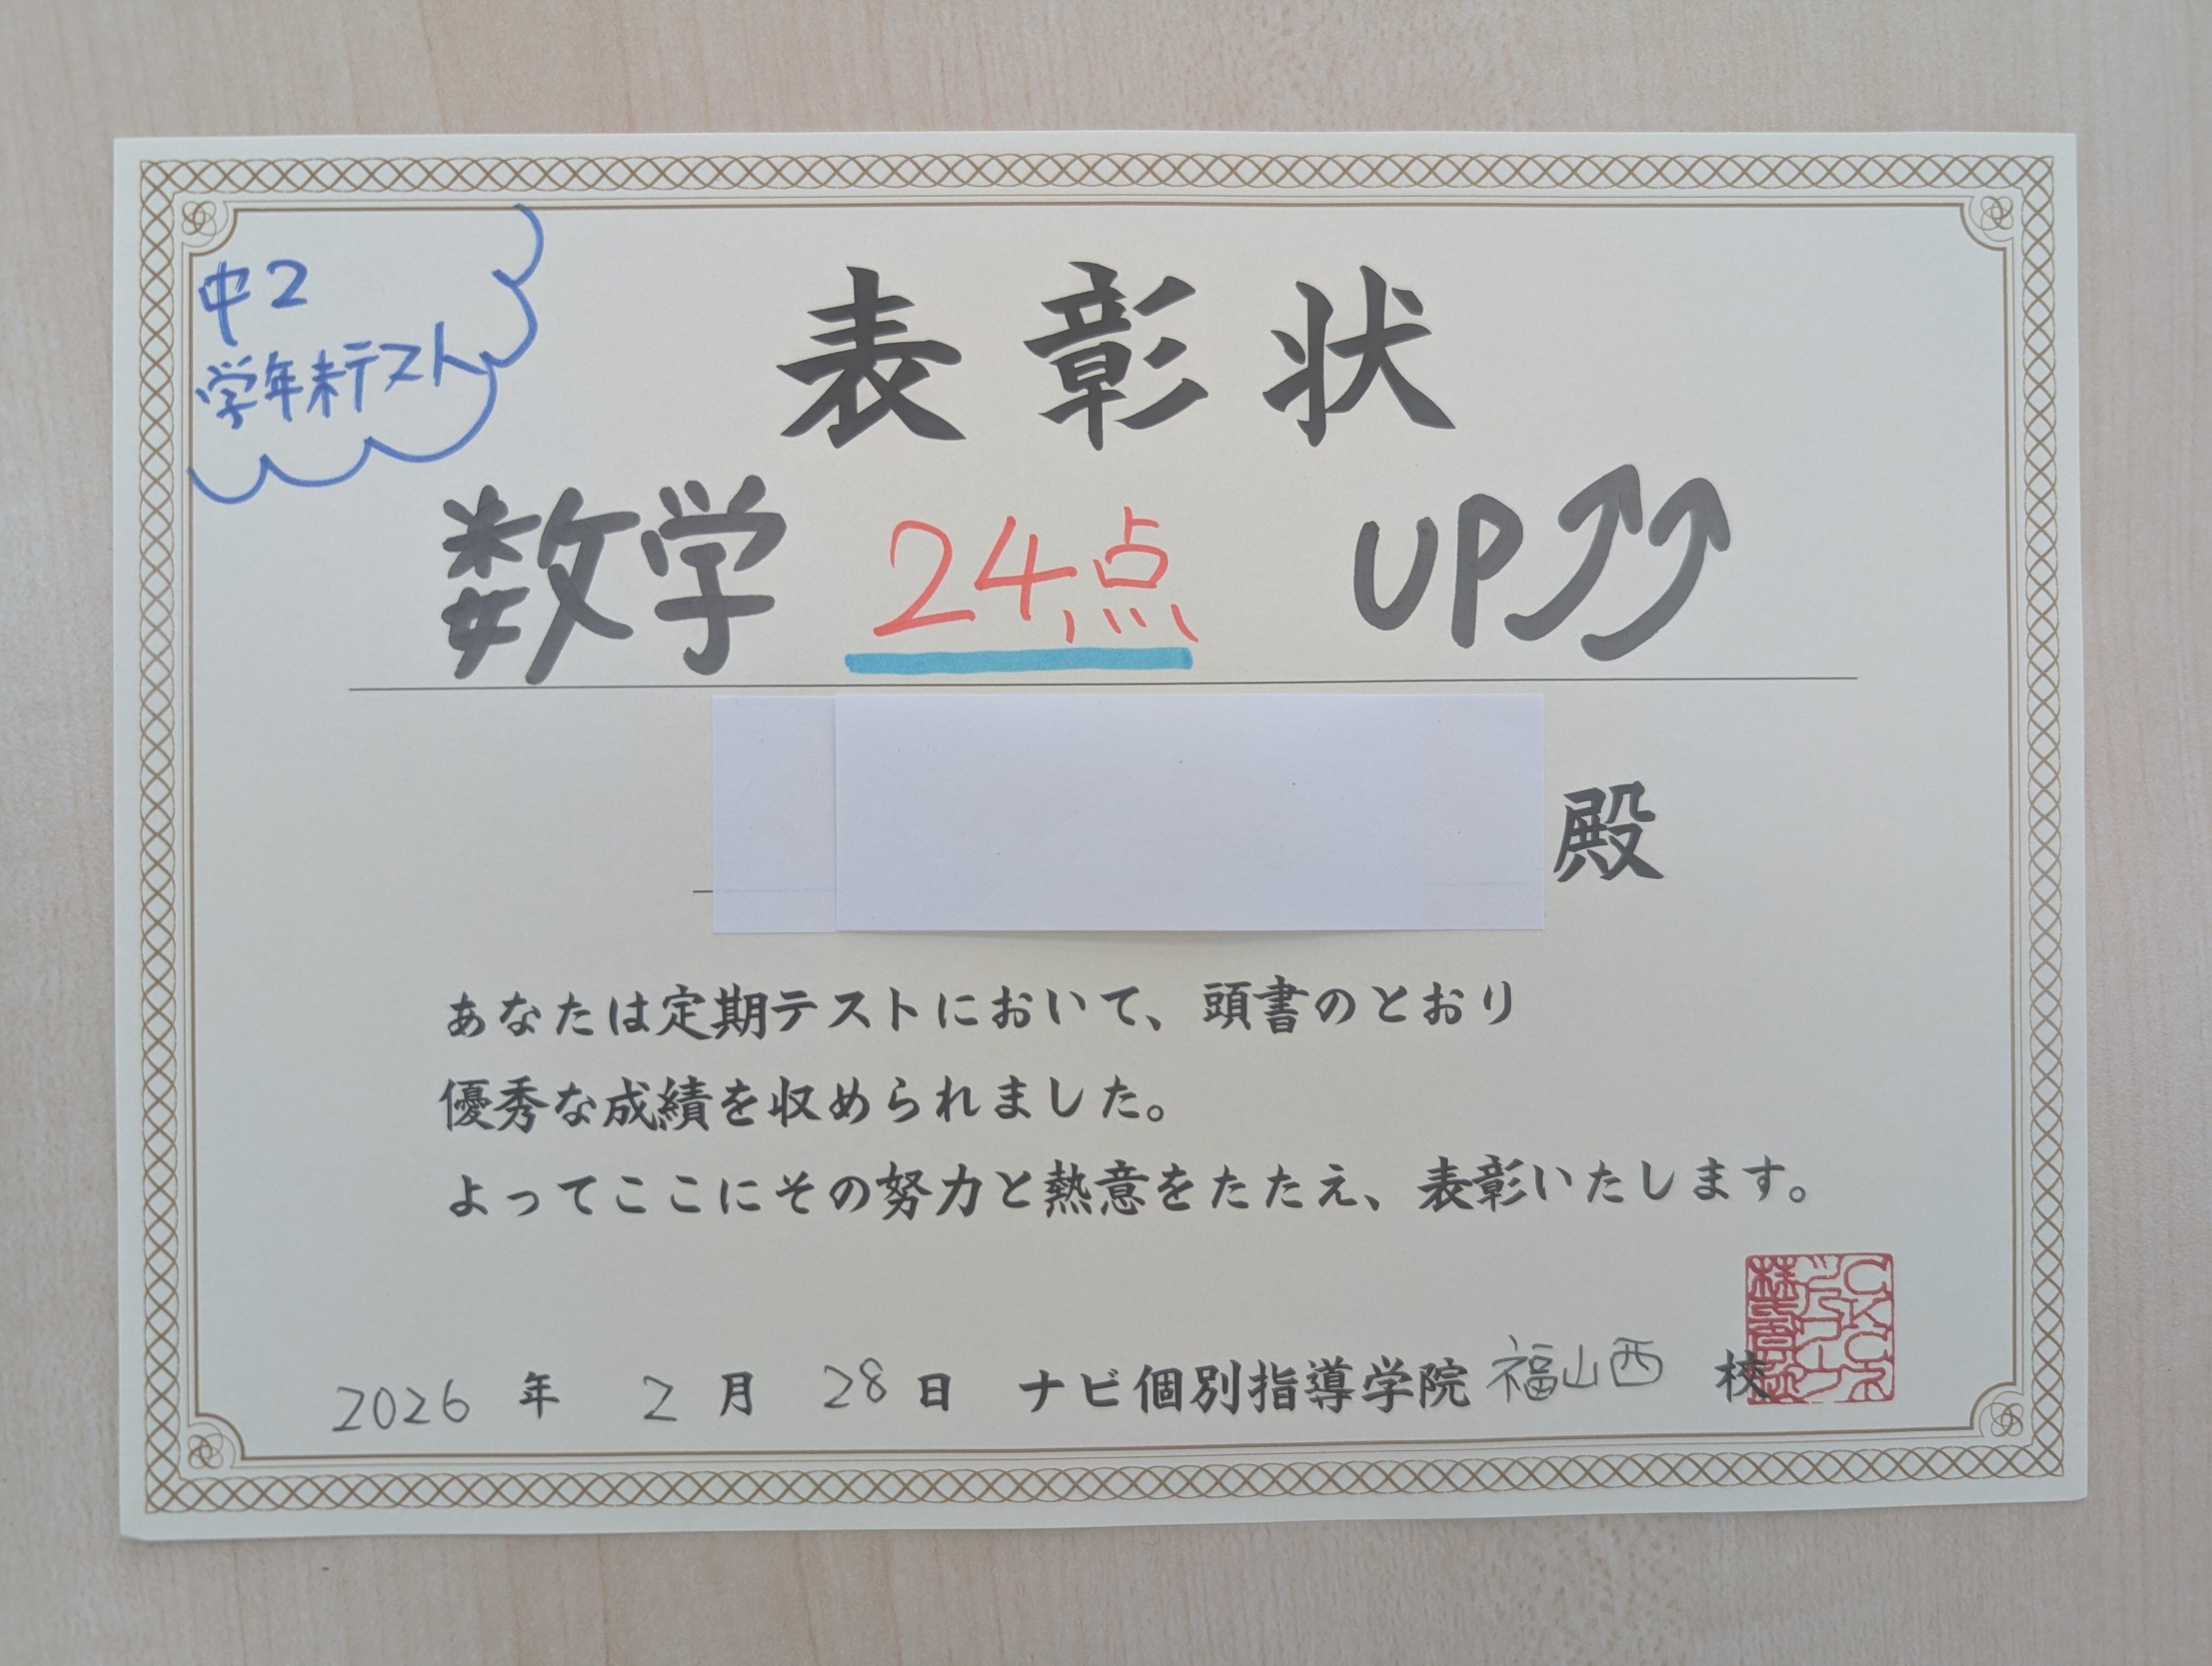 中2
学年末テスト
表彰状
数学 24点 UP
殿
あなたは定期テストにおいて、頭書のとおり
優秀な成績を収められました。
よってここにその努力と熱意をたたえ、表彰いたします。
2026 年 2 月 28 日 ナビ個別指導学院 福山西 校